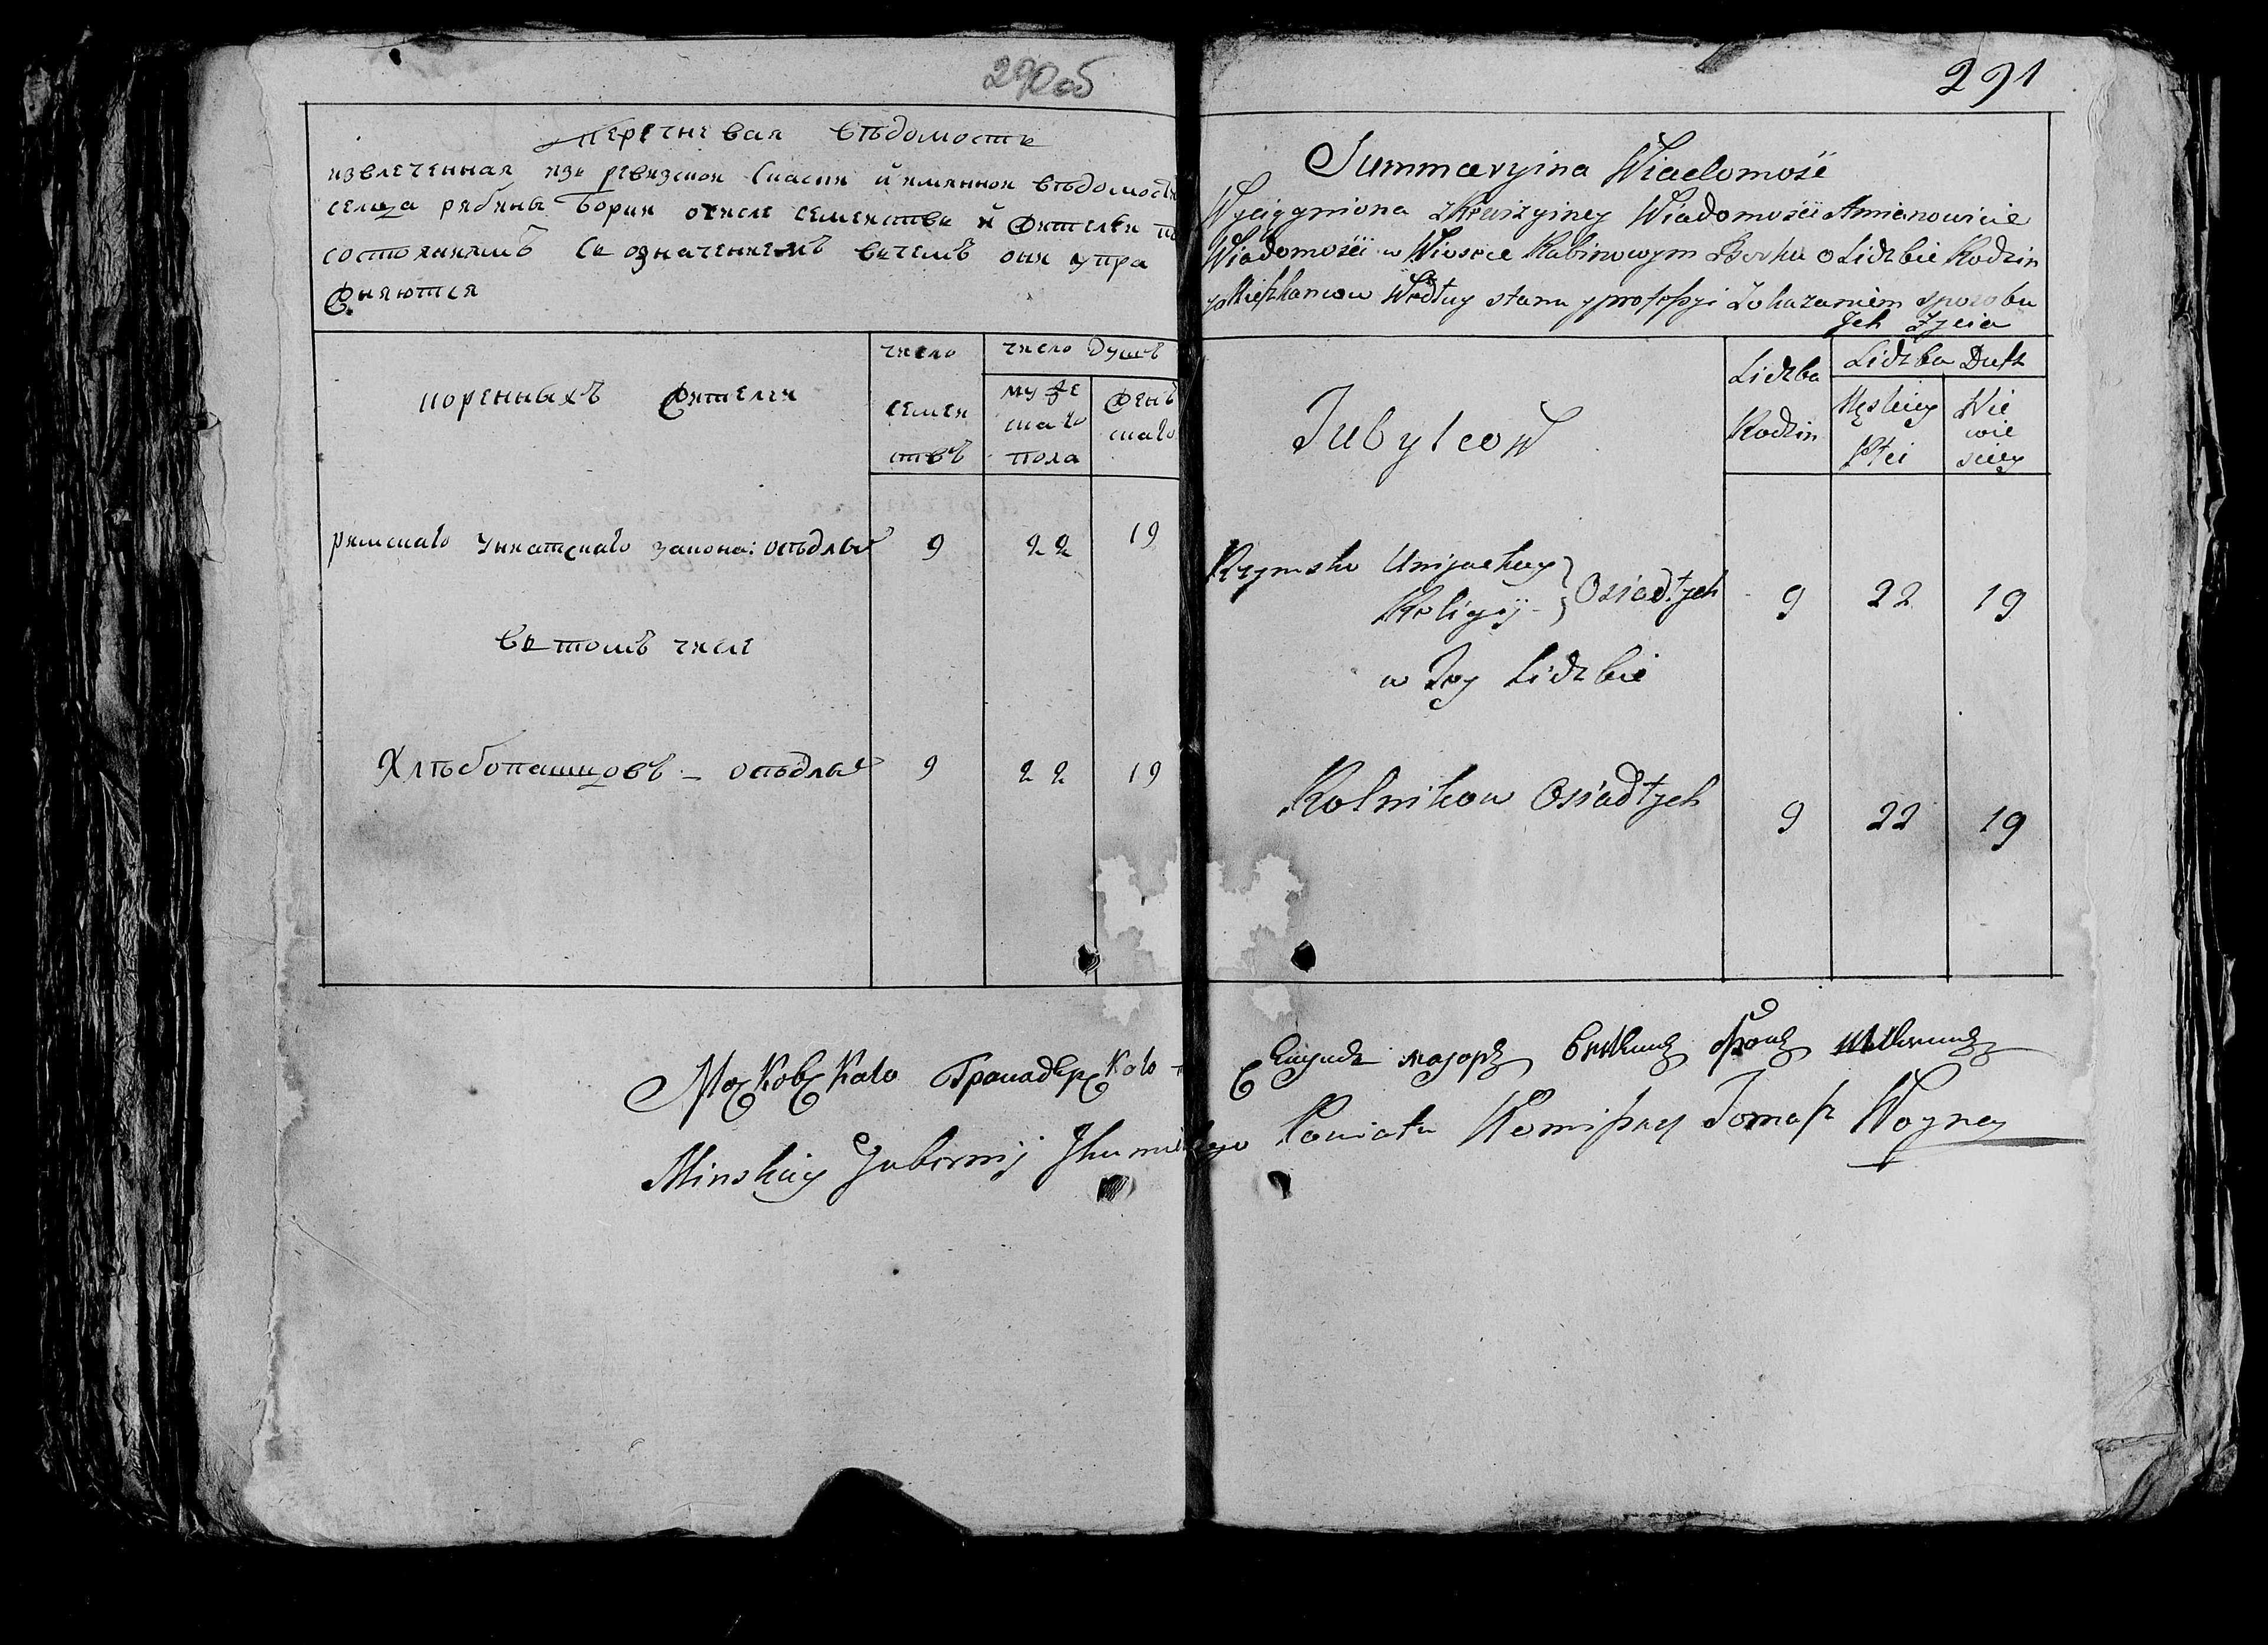 290об
Перечневая вѣдомость
извлеченная изъ ревизскои Скаски и имяннои вѣдомости
селца рябины Борки очисле семействъ и жителеи по
состояниямъ Съ означениемъ въчемъ они упра
жняются
коренныхъ жителеи
число семеи ствъ
число душъ
муже скаго пола
женъ скаго
римскаго униатскаго закона: осѣдлых 9 22 19
въ томъ числе
Хлѣбопашцовъ – осѣдлых 9 22 19
291
Summaryina Wiadomość
Wyciągniona z Rewizyiney Wiadomości Amianowicie
Wiadomości w Wiosce Rabinowym Borku o Lidzbie Rodzin
y Mieszkancow Według stanu y professyi Zokazaniem sposobu
Jch Zycia
Tubylcow
Lidzba Rodzin
Lidzba Dusz
Męskiey Płci
Nie wie sciey
Rzymsko Uniiackiey Religij } Osiadłych 9 22 19
w Tey Lidzbie
Rolnikow Osiadłych 9 22 19
Московскаго Гранадерскаго Секундъ маіоръ
Minskiey Gubernij Jhumenskego Powiatu Tomasz Woyney